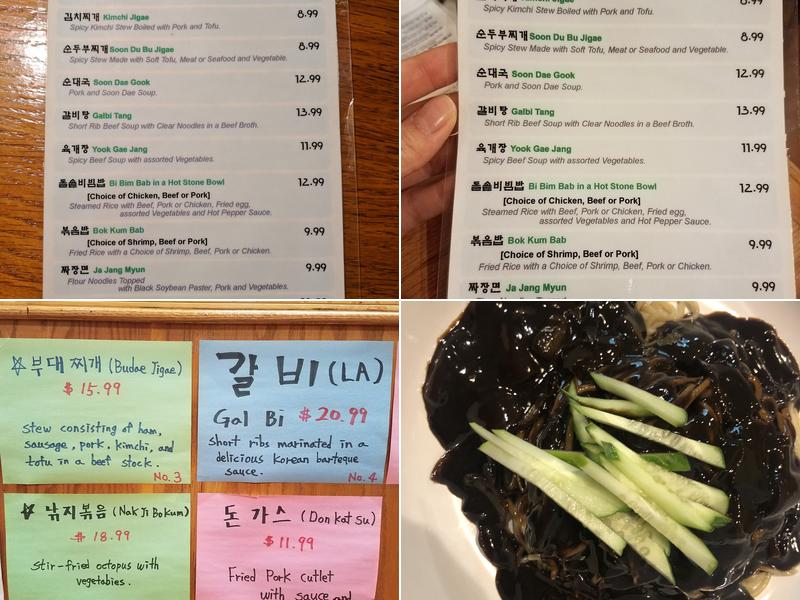 김치찌개 Kimchi Jigae 8.99
Spicy Kimchi Stew Boiled with Pork and Tofu.
순두부찌개 Soon Du Bu Jigae 8.99
Spicy Stew Made with Soft Tofu, Meat or Seafood and Vegetable.
순대국 Soon Dae Gook 12.99
Pork and Soon Dae Soup.
갈비탕 Galbi Tang 13.99
Short Rib Beef Soup with Clear Noodles in a Beef Broth.
육개장 Yook Gae Jang 11.99
Spicy Beef Soup with assorted Vegetables.
돌솥비빔밥 Bi Bim Bab in a Hot Stone Bowl 12.99
[Choice of Chicken, Beef or Pork]
Steamed Rice with Beef, Pork or Chicken, Fried egg,
assorted Vegetables and Hot Pepper Sauce.
볶음밥 Bok Kum Bab 9.99
[Choice of Shrimp, Beef or Pork]
Fried Rice with a Choice of Shrimp, Beef, Pork or Chicken.
짜장면 Ja Jang Myun 9.99
Flour Noodles Topped
with Black Soybean Paster, Pork and Vegetables.
Kimchi Jigae 8.99
Spicy Kimchi Stew Boiled with Pork and Tofu.
순두부찌개 Soon Du Bu Jigae 8.99
Spicy Stew Made with Soft Tofu, Meat or Seafood and Vegetable.
순대국 Soon Dae Gook 12.99
Pork and Soon Dae Soup.
갈비탕 Galbi Tang 13.99
Short Rib Beef Soup with Clear Noodles in a Beef Broth.
육개장 Yook Gae Jang 11.99
Spicy Beef Soup with assorted Vegetables.
돌솥비빔밥 Bi Bim Bab in a Hot Stone Bowl 12.99
[Choice of Chicken, Beef or Pork]
Steamed Rice with Beef, Pork or Chicken, Fried egg,
assorted Vegetables and Hot Pepper Sauce.
볶음밥 Bok Kum Bab 9.99
[Choice of Shrimp, Beef or Pork]
Fried Rice with a Choice of Shrimp, Beef, Pork or Chicken.
짜장면 Ja Jang Myun 9.99
☆부대찌개 (Budae Jigae)
$15.99
Stew consisting of ham,
sausage, pork, kimchi, and
tofu in a beef stock.
No.3
갈비 (LA)
Gal Bi $20.99
Short ribs marinated in a
delicious Korean barteque
sauce.
No.4
☆낚지볶음 (Nak Ji Bokum)
$18.99
Stir-fried octopus with
vegetables.
돈가스 (Don kat su)
$11.99
Fried Pork cutlet
with sauce and